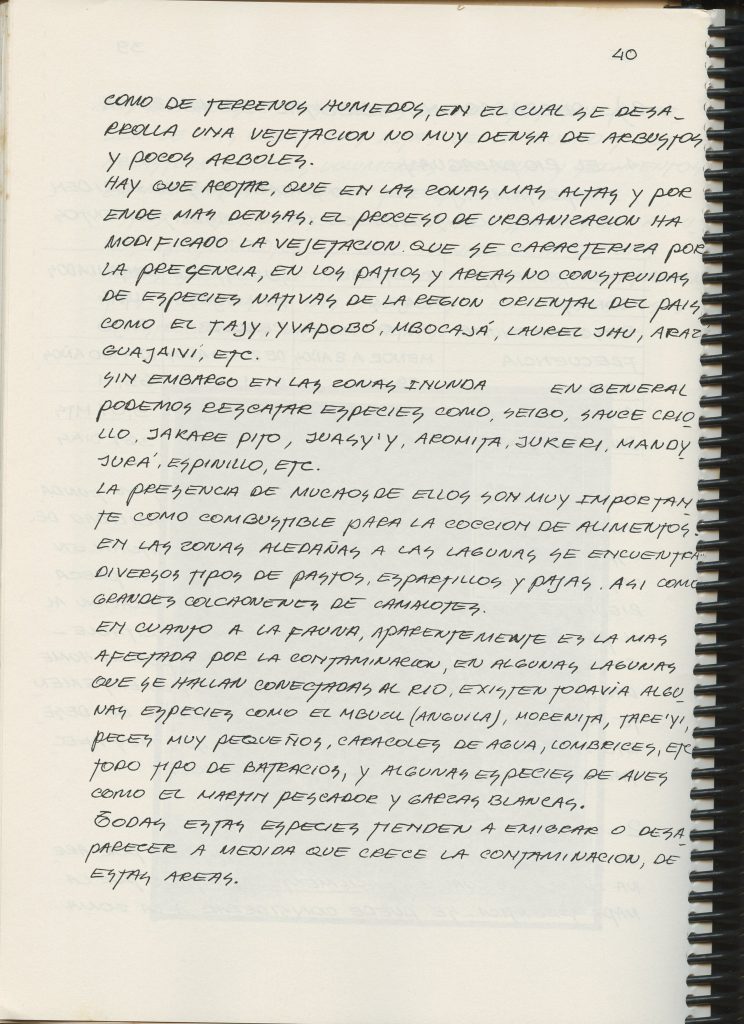 40
COMO DE TERRENOS HUMEDOS, EN EL CUAL SE DESA-
RROLLA UNA VEJETACION NO MUY DENSA DE ARBUSTOS
Y POCOS ARBOLES.
HAY QUE ACOTAR, QUE EN LAS ZONAS MAS ALTAS Y POR
ENDE MAS DENSAS, EL PROCESO DE URBANIZACION HA
MODIFICADO LA VEJETACION QUE SE CARACTERIZA POR
LA PRESENCIA, EN LOS PATIOS Y AREAS NO CONSTRUIDAS
DE ESPECIES NATIVAS DE LA REGION ORIENTAL DEL PAIS
COMO EL TAJY, YVAPOBÓ, MBOCAJÁ, LAUREL JHU,
GUAJAIVÍ, ETC.
SIN EMBARGO EN LAS ZONAS INUNDA EN GENERAL
PODEMOS RESCATAR ESPECIES COMO, SEIBO, SAUCE CRIO
LLO, JAKARE PITO, JUASY'Y, AROMITA, JUKERI, MANDY
JURÁ, ESPINILLO, ETC.
LA PRESENCIA DE MUCHOS DE ELLOS SON MUY IMPORTAN
TE COMO COMBUSTIBLE PARA LA COCCION DE ALIMENTOS.
EN LAS ZONAS ALEDAÑAS A LAS LAGUNAS SE ENCUENTRA
DIVERSOS TIPOS DE PASTOS, ESPARTILLOS Y PAJAS. ASI COMO
GRANDES COLCHONENES DE CAMALOTES.
EN CUANTO A LA FAUNA, APARENTEMENTE ES LA MAS
AFECTADA POR LA CONTAMINACION, EN ALGUNAS LAGUNAS
QUE SE HALLAN CONECTADAS AL RIO, EXISTEN TODAVIA ALGU
NAS ESPECIES COMO EL MBUSU (ANGUILA), MORENITA, TARE'YI,
PECES MUY PEQUEÑOS, CARACOLES DE AGUA, LOMBRICES, ETC
TODO TIPO DE BATRACIOS, Y ALGUNAS ESPECIES DE AVES
COMO EL MARTIN PESCADOR Y GARZAS BLANCAS.
TODAS ESTAS ESPECIES TIENDEN A EMIGRAR O DESA
PARECER A MEDIDA QUE CRECE LA CONTAMINACION, DE
ESTAS AREAS.